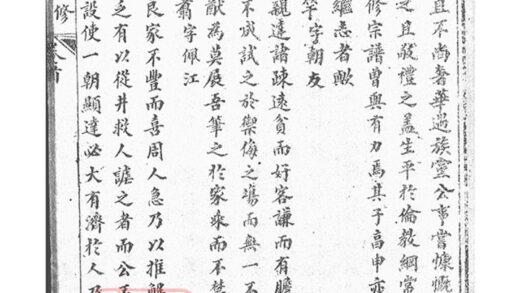 且不尚奢華過族靈公事嘗慷慨
之且敬禮之蓋生平於倫教綱常
修宗譜曽與有力焉其子高申亦
繼志者歟
竿字朝友
親達諸疎遠貧而好客謙而有膽
不或試之於禦侮之塲而無一不
猷為莫展吾筆之於家乘而不禁
翕字佩江
良家不豐而喜周人急乃以推解
乏有以從井救人謔之者而公
設使一朝顯達必大有濟於人
修